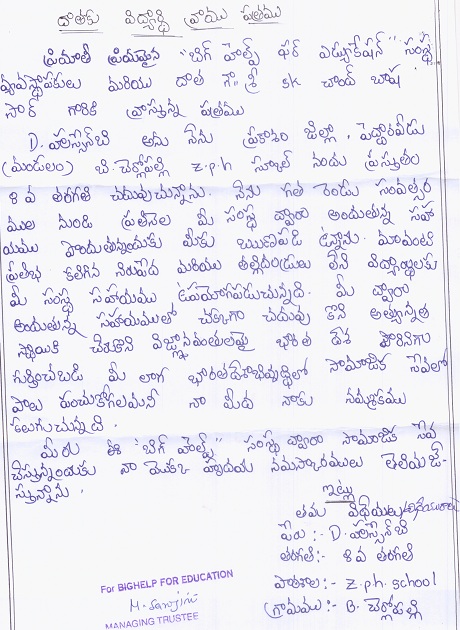 దాతకు విద్యార్థి వ్రాయు పత్రము
ప్రియాతి ప్రియమైన "బిగ్ హెల్ప్ ఫర్ ఎడ్యుకేషన్" సంస్థ
వ్యవస్థాపకులు మరియు దాత గౌ|| శ్రీ sk చాంద్ బాషా
సార్ గారికి వ్రాస్తున్న పత్రము
D. హుస్సేన్‌బి అను నేను ప్రకాశం జిల్లా, పెద్దారవీడు
(మండలం) బి. చెర్లోపల్లి z.p.h స్కూల్ నందు ప్రస్తుతం
8 వ తరగతి చదువుచున్నాను. నేను గత రెండు సంవత్సర
ముల నుండి ప్రతినెల మీ సంస్థ ద్వారా అందుతున్న సహా
యము పొందుతున్నందుకు మీకు ఋణపడి ఉన్నాను. మావంటి
ప్రతిభ కలిగిన నిరుపేద మరియు తల్లిదండ్రులు లేని విద్యార్థులకు
మీ సంస్థ సహాయము ఉపయోగపడుచున్నది. మీ ద్వారా
అందుతున్న సహాయముతో చక్కగా చదువు కొని అత్యున్నత
స్థాయికి చేరుకొని విజ్ఞానవంతులమై భారత దేశ పౌరునిగా
గుర్తించబడి మీ లాగ భారతదేశాభివృద్ధిలో సామాజిక సేవలో
పాలు పంచుకోగలమని నా మీద నాకు నమ్మకము
కలుగుచున్నది.
మీరు ఈ "బిగ్ హెల్ప్" సంస్థ ద్వారా సామాజిక సేవ
చేస్తున్నందుకు నా యొక్క హృదయ నమస్కారములు తెలియజే-
స్తున్నాను.
ఇట్లు
తమ విధేయులు
పేరు :- D. హుస్సేన్ బి
తరగతి:- 8 వ తరగతి
పాఠశాల :- z.ph.school
గ్రామము :- B. చెర్లోపల్లి
For BIGHELP FOR EDUCATION
M. Sarojini
MANAGING TRUSTEE